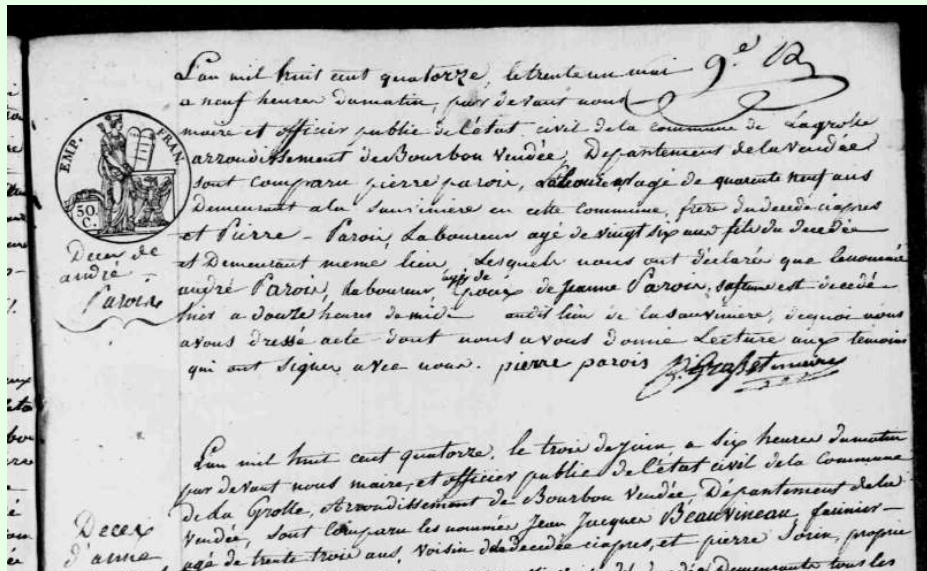 L'an mil huit cent quatorze, le trente un mai 9.e
a neuf heures du matin, par devant nous
maire et officier public de l'état civil de la commune de Lagrolle
arrondissement de Bourbon Vendée, Departement de la Vendée
sont comparu pierre parois, agé de quarente neuf ans
Demeurant a la Sauviniere en cette commune, frere du decedé ciapres
et Pierre - Parois, Laboureur agé de vingt six ans fils du decedée
et Demeurant meme lieu Lesquels nous ont déclarée que le nommé
andré Parois, Laboureur epoux de Jeanne Parois, sa fame est decedé
hier a douze heures de midi audit lieu de la sauviniere, de quoi nous
avons dressé acte dont nous avons donné Lecture aux temoins
qui ont signer avec nous. pierre parois maire
EMP. FRAN.
50 C.
Decex de
andré
Parois
L'an mil huit cent quatorze, le trois de juin a six heures du matin
par devant nous maire, et officier public de l'état civil de la Commune
de La Grolle, Arrondissement de Bourbon Vendée, Département de la
Vendée, sont Comparu les nommée Jean Jacques Beauvineau farinier -
agé de trente trois ans, voisin de la decedée ciapres, et pierre Sorin, proprie
Demeurante tous les
Decex
d'anne